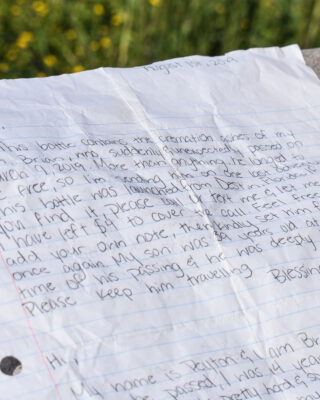 August 1st, 2019
This bottle contains the cremation ashes of my
Brian, who suddenly & unexpectedly passed on
March 9, 2019. More than anything, he longed to
free, so I'm sending him on the last
This bottle was launched from Destin
you find it please call or text me & let me
I have left $ to cover your call. Feel free
add your own note, then kindly set him
once again. My son was 39 years old at
time of his passing & he was deeply
Please keep him travelling Blessings
Hi,
My name is Peyton & I am Br
he passed, I was 14 years
pretty hard &